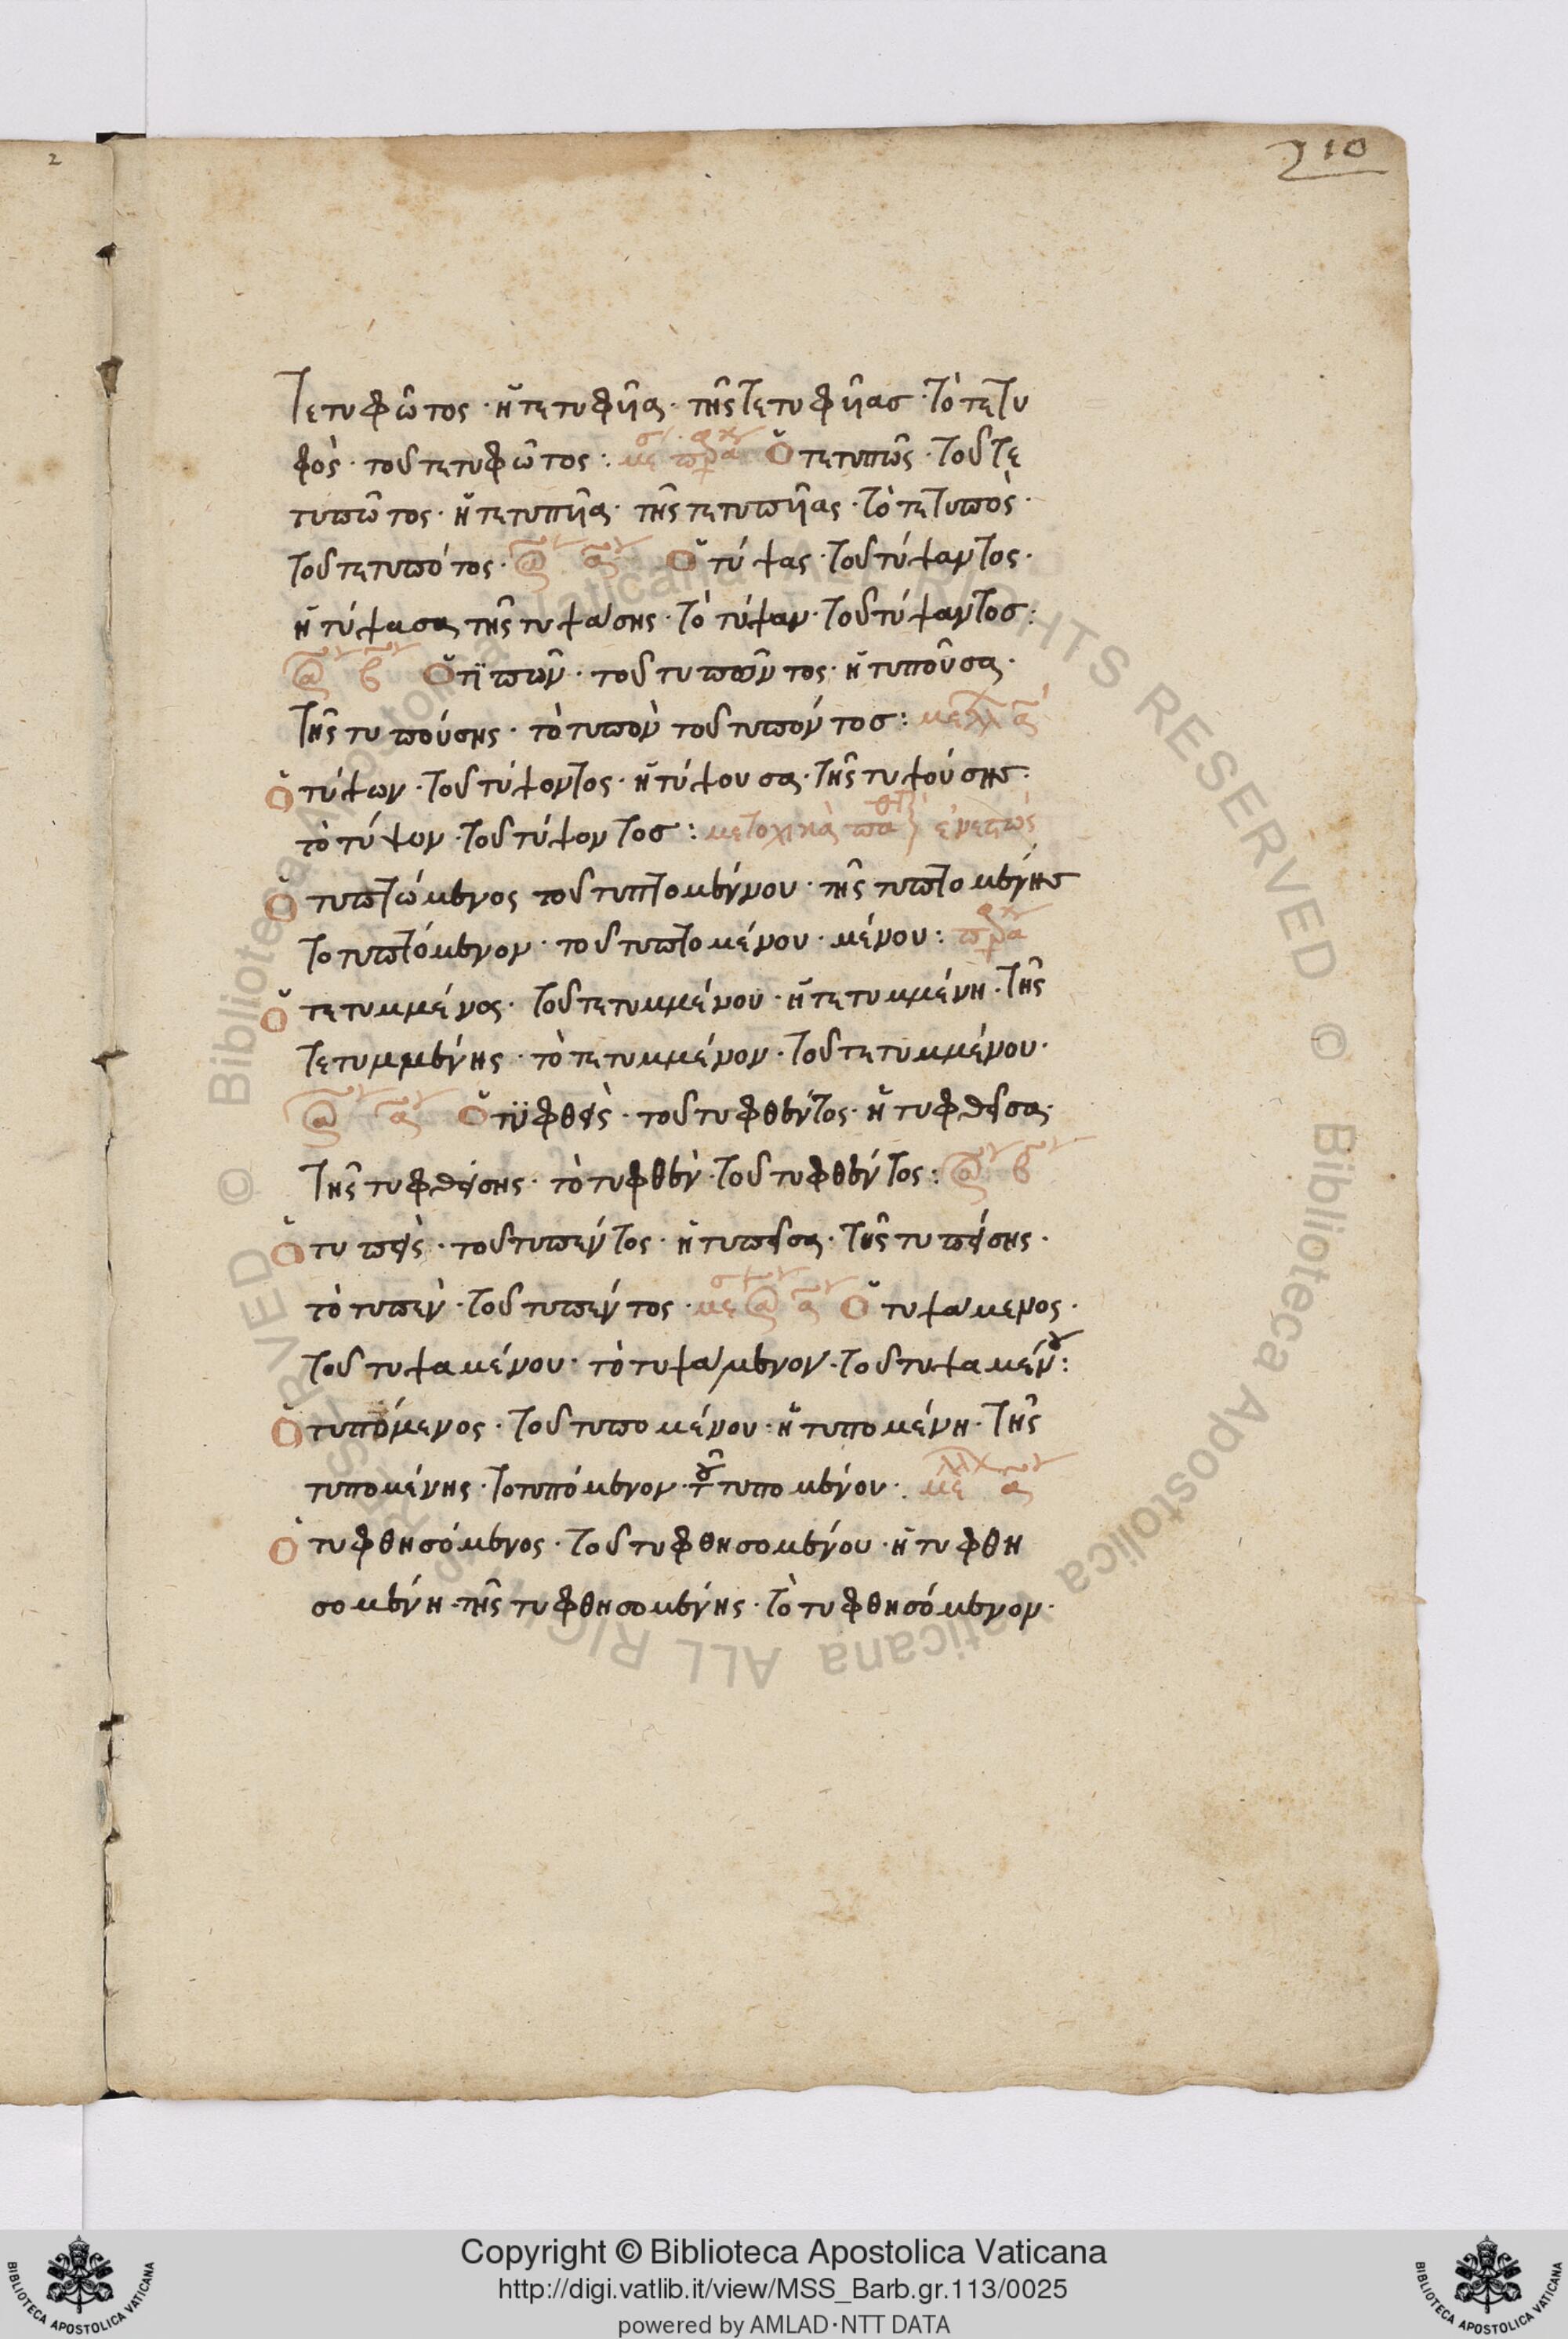 2
210
τετυφῶτος · ἡ τετυφυῖα · τῆς τετυφυίασ · τὸ τετυ
φὸς · τοῦ τετυφῶτος : Ὁ τετυπῶς · τοῦ τε
τυπῶτος · ἡ τετυπυῖα · τῆς τετυπυίας · τὸ τετυπὸς ·
τοῦ τετυπότος · Ὁ τύψας · τοῦ τύψαντος ·
ἡ τύψασα τῆς τυψάσης · τὸ τύψαν · τοῦ τύψαντοσ :
β Ὁ τϋπῶν · τοῦ τυποῦντος · ἡ τυποῦσα ·
τῆς τυπούσης · τὸ τυπὸν τοῦ τυπόντοσ :
Ὁ τύψων · τοῦ τύψοντος · ἡ τύψουσα · τῆς τυψούσησ ·
τὸ τύψον · τοῦ τύψοντοσ : μετοχικὰ
Ὁ τυπτώμενος τοῦ τυπτομένου · τῆς τυπτομένησ
το τυπτόμενον · τοῦ τυπτομένου · μένου :
Ὁ τετυμμένος · τοῦ τετυμμένου · ἡ τετυμμένη · τῆς
τετυμμένης · τὸ τετυμμένον · τοῦ τετυμμένου ·
Ὁ τϋφθεὶς · τοῦ τυφθέντος · ἡ τυφθεῖσα ·
τῆς τυφθείσης · τὸ τυφθὲν · τοῦ τυφθέντος : β
Ὁ τυπεὶς · τοῦ τυπέντος · ἡ τυπεῖσα · τῆς τυπείσης ·
τὸ τυπὲν · τοῦ τυπέντος · Ὁ τυψάμενος ·
τοῦ τυψαμένου · τὸ τυψάμενον · τοῦ τυψαμένου :
Ὁ τυπόμενος · τοῦ τυπομένου · ἡ τυπομένη · τῆς
τυπομένης · το τυπόμενον · τοῦ τυπομένου ·
Ὁ τυφθησόμενος · τοῦ τυφθησομένου · ἡ τυφθη
σομένη · τῆς τυφθησομένης · τὸ τυφθησόμενον ·
© Biblioteca Apostolica Vaticana ALL RIGHTS RESERVED © Biblioteca Apostolica Vaticana ALL RIGHTS RESERVED
Copyright © Biblioteca Apostolica Vaticana
http://digi.vatlib.it/view/MSS_Barb.gr.113/0025
powered by AMLAD·NTT DATA
BIBLIOTECA APOSTOLICA VATICANA
BIBLIOTECA APOSTOLICA VATICANA